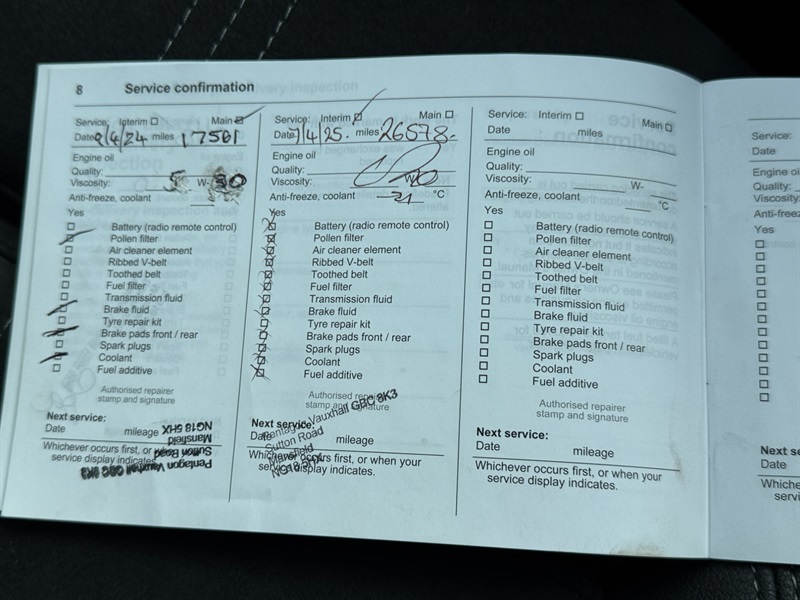 8 Service confirmation
Service: Interim Main
Date 9/4/24 miles 17561
Engine oil
Quality:
Viscosity: 5 W- 30
Anti-freeze, coolant
Yes
Battery (radio remote control)
Pollen filter
Air cleaner element
Ribbed V-belt
Toothed belt
Fuel filter
Transmission fluid
Brake fluid
Tyre repair kit
Brake pads front / rear
Spark plugs
Coolant
Fuel additive
Authorised repairer
stamp and signature
Next service:
Date mileage
Whichever occurs first, or
service display indicates.
Pentagon Vauxhall GBC 8K3
Sutton Road
Mansfield
NG18 5HX
Service: Interim Main
Date 7/4/25. miles 26578.
Engine oil
Quality:
Viscosity: W
Anti-freeze, coolant -21 °C
Yes
Battery (radio remote control)
Pollen filter
Air cleaner element
Ribbed V-belt
Toothed belt
Fuel filter
Transmission fluid
Brake fluid
Tyre repair kit
Brake pads front / rear
Spark plugs
Coolant
Fuel additive
Authorised repairer
stamp and signature
Pentagon Vauxhall GBC 8K3
Sutton Road
Mansfield
NG18 5HX
Next service:
Date mileage
Whichever occurs first, or when your
service display indicates.
Service: Interim Main
Date miles
Engine oil
Quality:
Viscosity: W-
Anti-freeze, coolant °C
Yes
Battery (radio remote control)
Pollen filter
Air cleaner element
Ribbed V-belt
Toothed belt
Fuel filter
Transmission fluid
Brake fluid
Tyre repair kit
Brake pads front / rear
Spark plugs
Coolant
Fuel additive
Authorised repairer
stamp and signature
Next service:
Date mileage
Whichever occurs first, or when your
service display indicates.
Service:
Date
Engine oil
Quality:
Viscosity:
Anti-freeze
Yes
Next se
Date
Whiche
servi